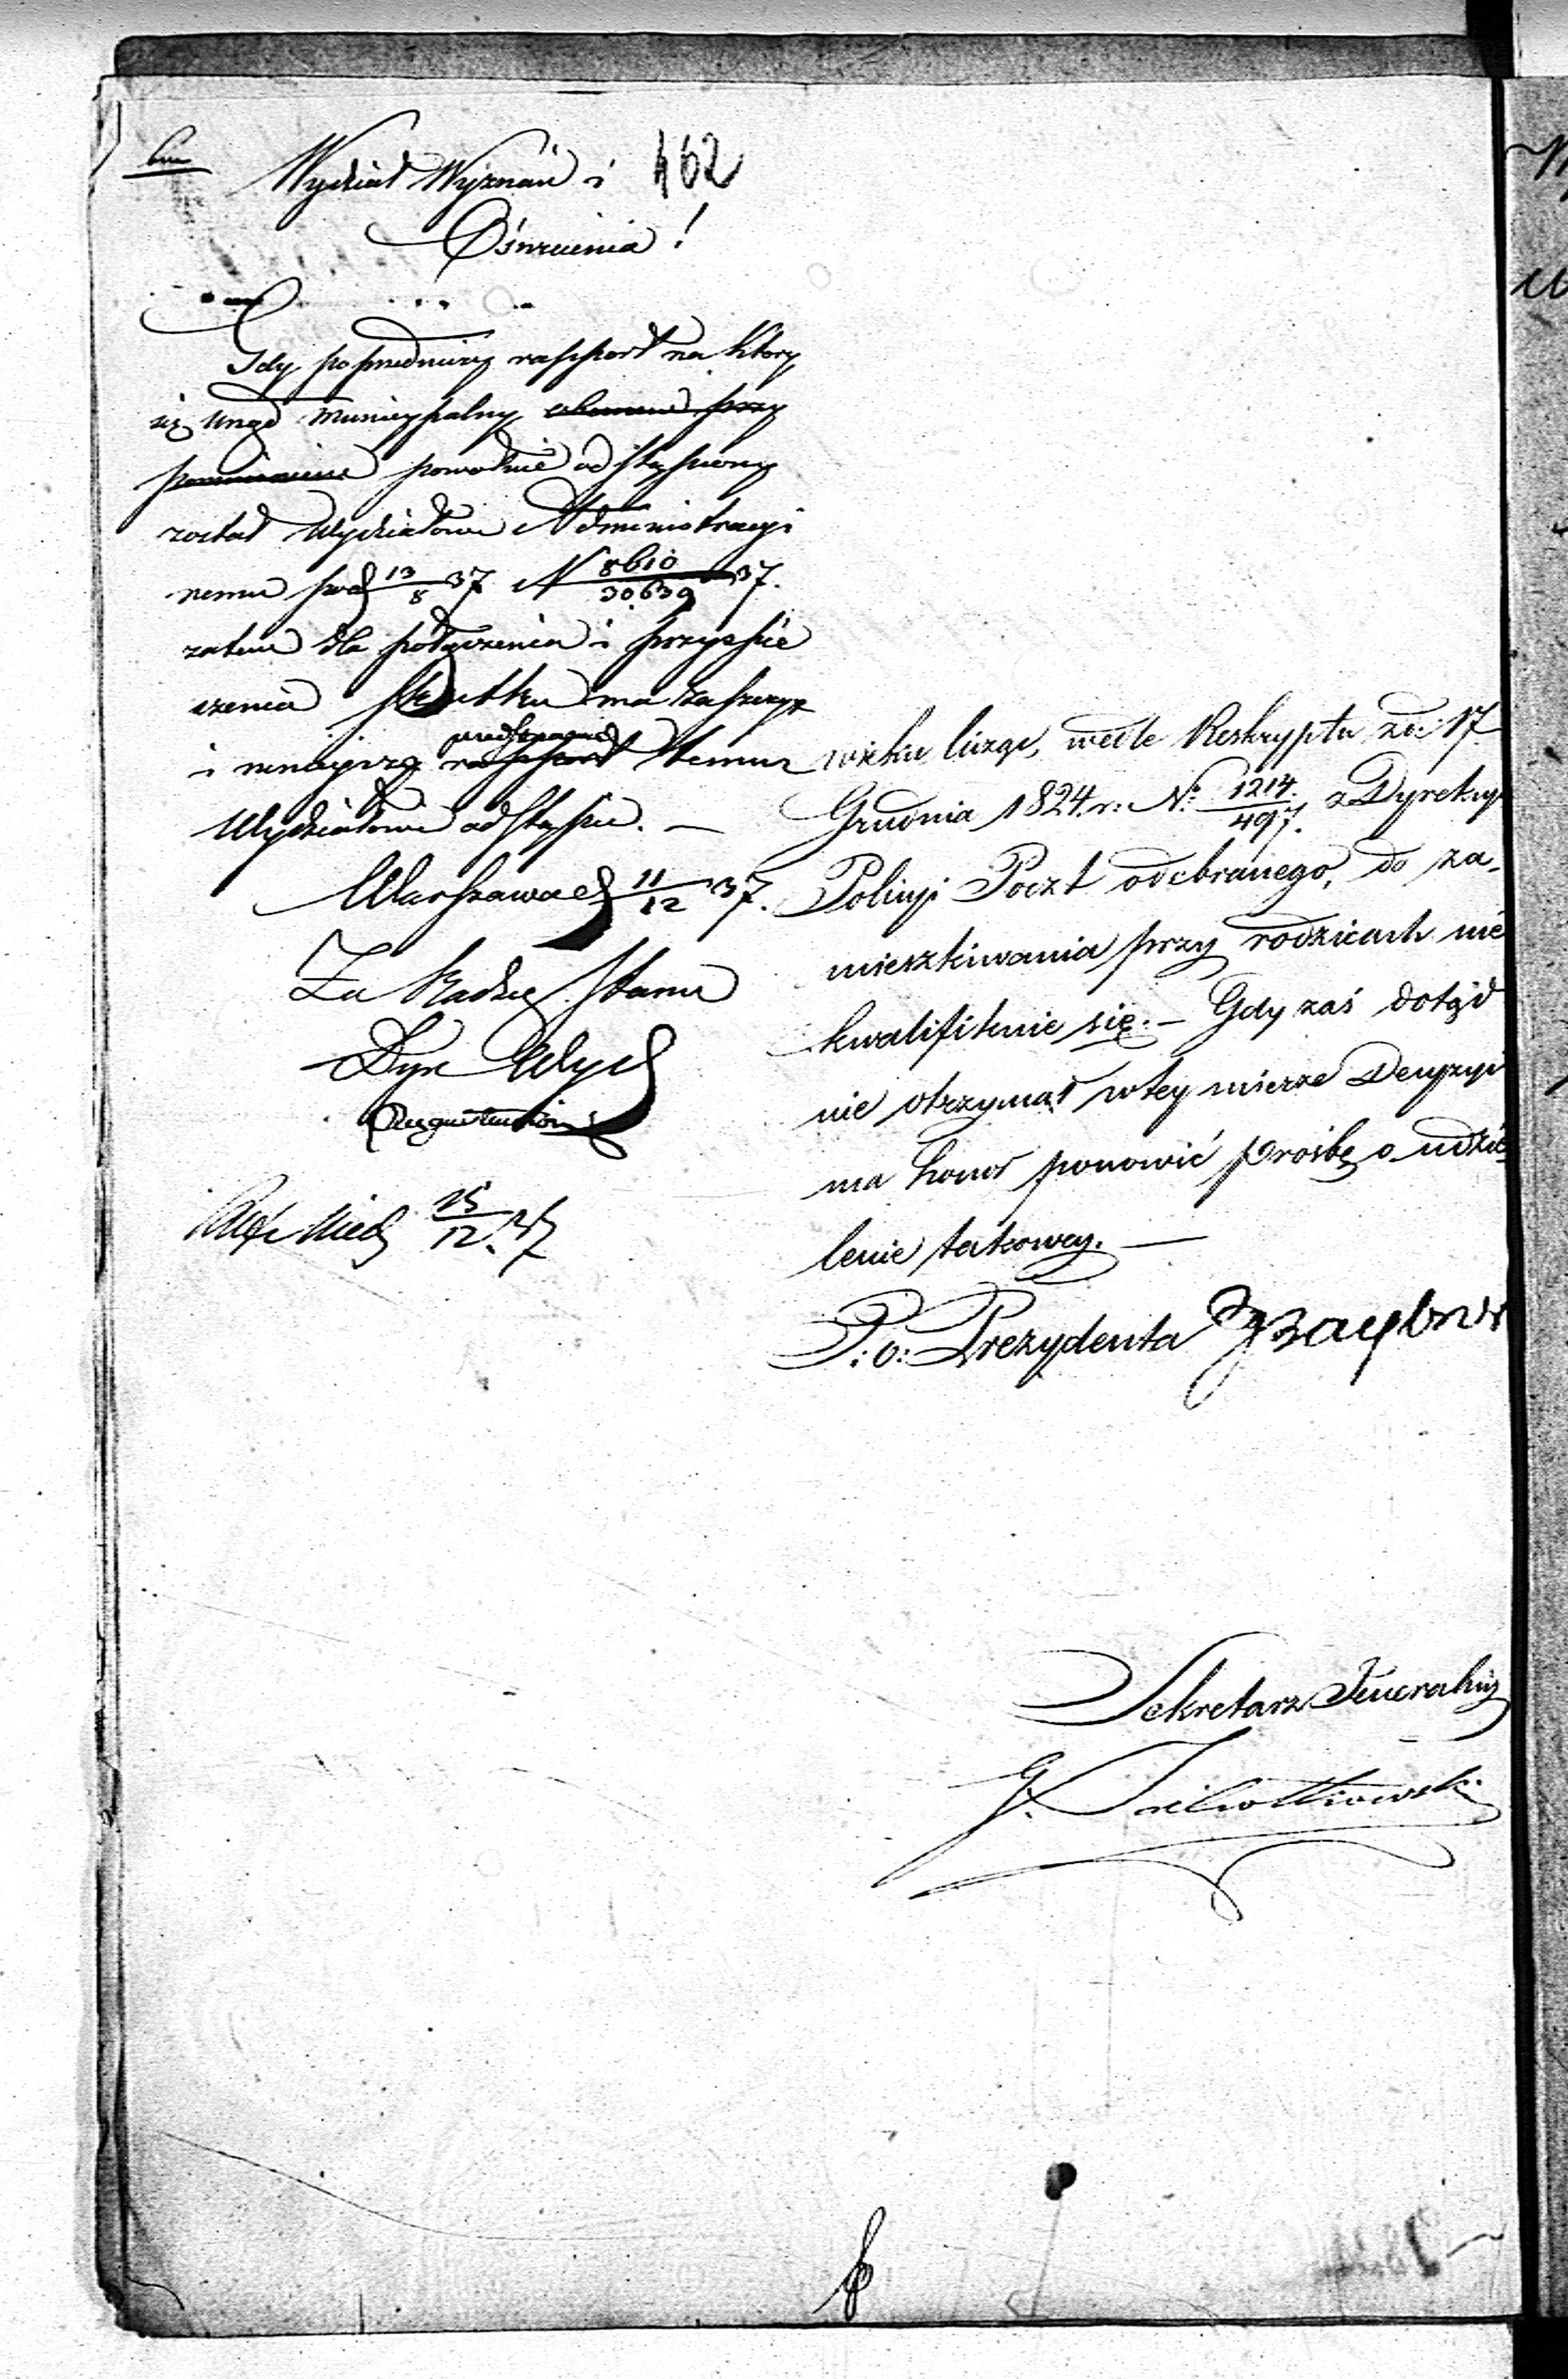 Wydział Wyznań i 462
Oświecenia!
Gdy poprzedniczy rapport na który
się Urząd Municypalny
powołuie odstąpiony
został Wydziałowi Administracyi
nemu pod 13/8 37 N 8610/30639 37.
zatem dla połączenia i przyspie
szenia skutku ma zaszczyt
i ninieyszą temuż
Wydziałowi odstąpić. —
Warszawa d 11/12 37.
Za Radzcę Stanu
Dyr Wyd
15/12. 37
wieku licząc, wedle Reskryptu zd: 17.
Grudnia 1824. r: No: 1214./497. z Dyrekcyi
Policyi Poczt odebranego, do za-
mieszkiwania przy rodzicach nie
kwalifikuie się. — Gdy zaś dotąd
nie otrzymał w tey mierze Decyzyi
ma honor ponowić prośbę o udzie-
lenie takowey. —
P: o: Prezydenta
Sekretarz Jeneralny
G.